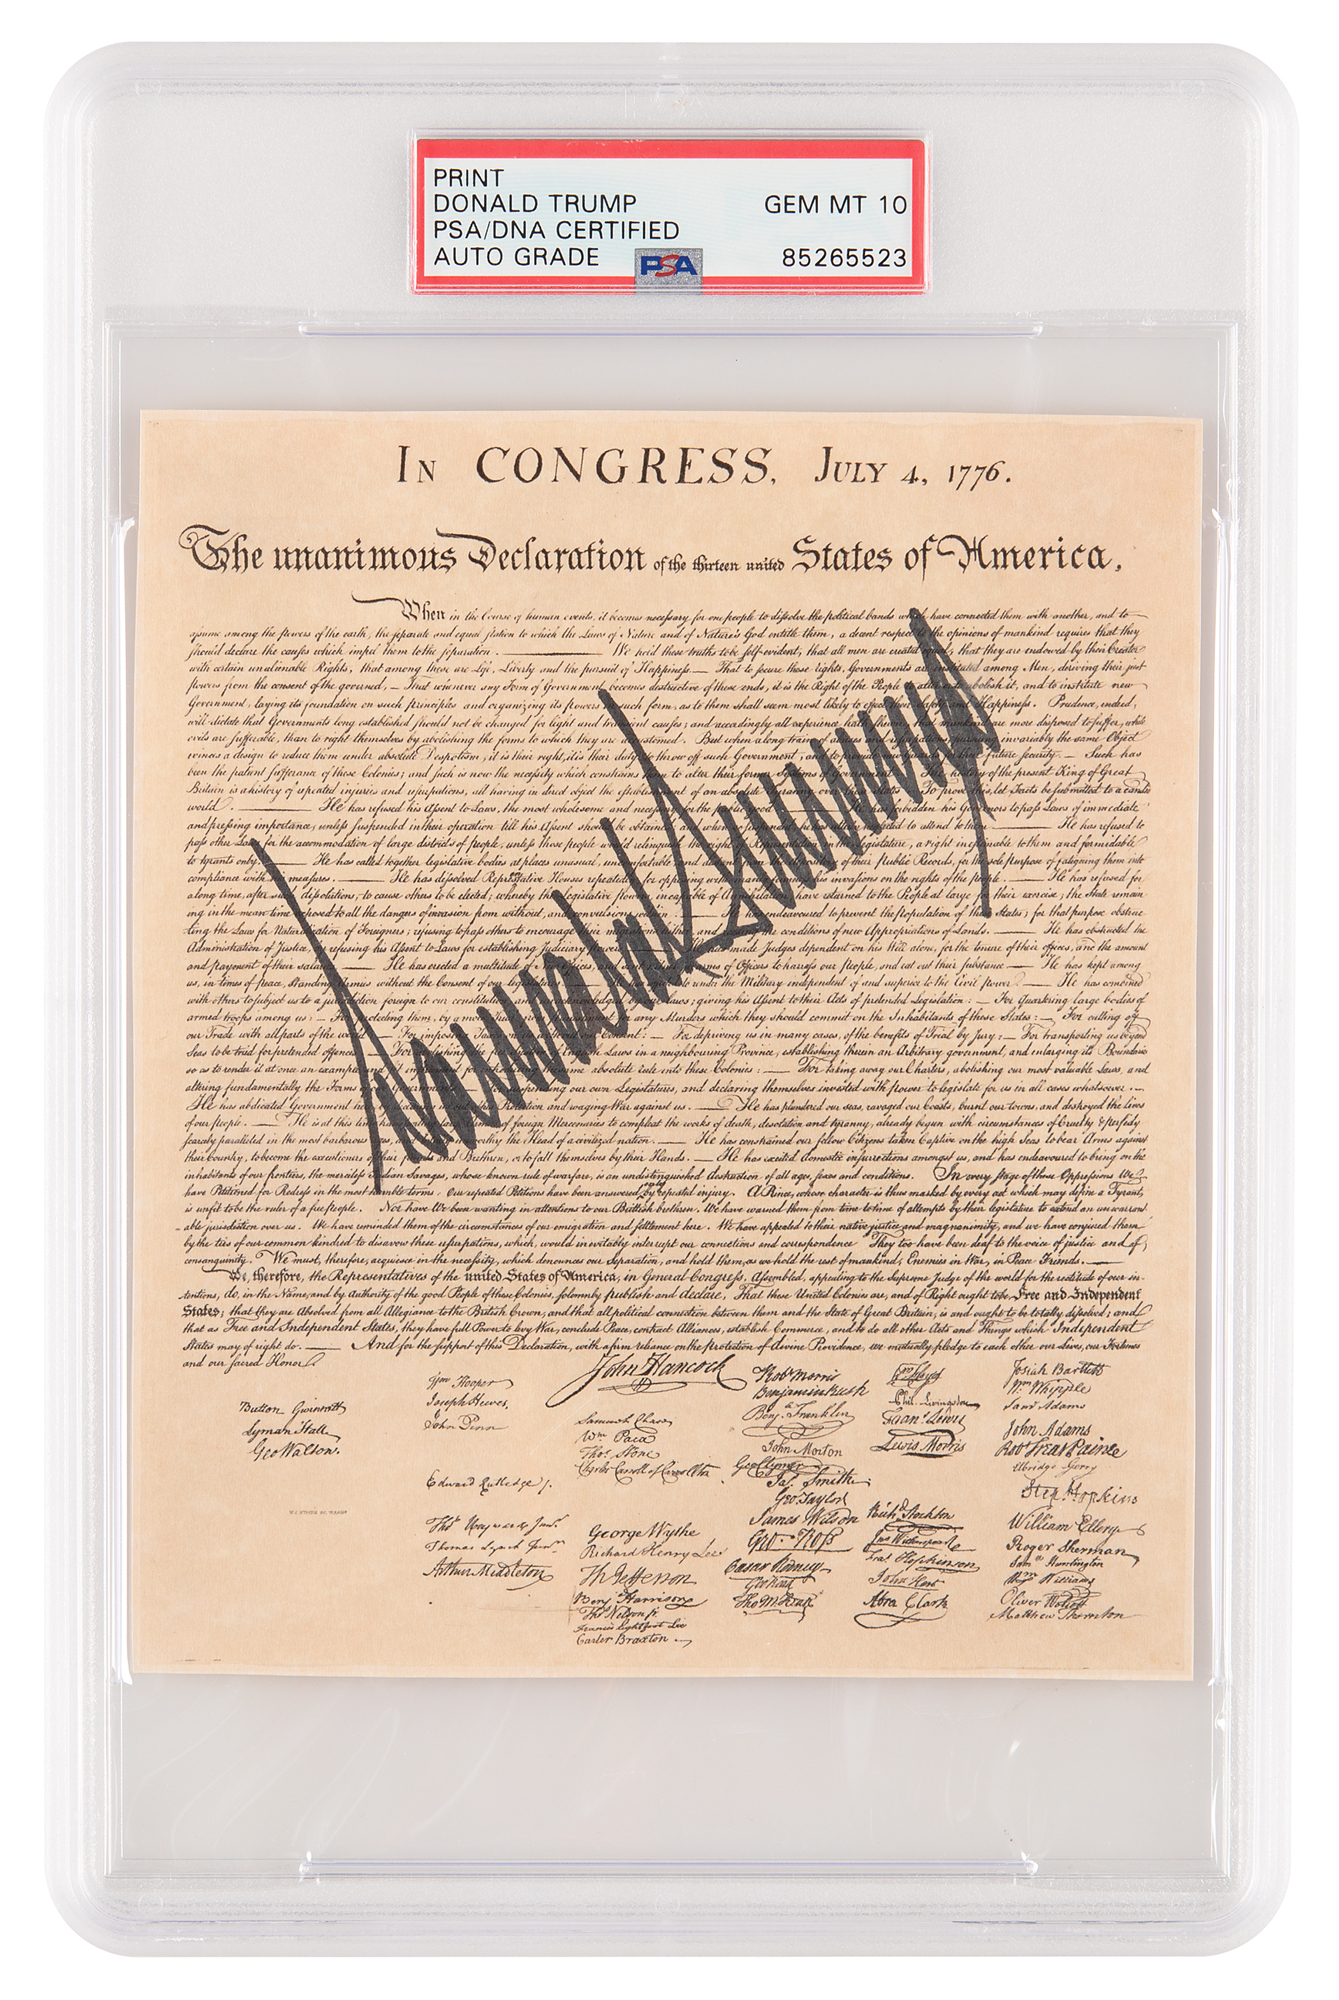 PRINT
DONALD TRUMP GEM MT 10
PSA/DNA CERTIFIED
AUTO GRADE PSA 85265523
In CONGRESS, July 4, 1776.
The unanimous Declaration of the thirteen united States of America,
When in the Course of human events, it becomes necessary for one people to dissolve the political bands which have connected them with another, and to
assume among the powers of the earth, the separate and equal station to which the Laws of Nature and of Nature's God entitle them, a decent respect to the opinions of mankind requires that they
should declare the causes which impel them to the separation. We hold these truths to be self-evident, that all men are created equal, that they are endowed by their Creator
with certain unalienable Rights, that among these are Life, Liberty and the pursuit of Happiness.— That to secure these rights, Governments are instituted among Men, deriving their just
powers from the consent of the governed,— That whenever any Form of Government becomes destructive of these ends, it is the Right of the People to alter or to abolish it, and to institute new
Government, laying its foundation on such principles and organizing its powers in such form, as to them shall seem most likely to effect their Safety and Happiness. Prudence, indeed,
will dictate that Governments long established should not be changed for light and transient causes; and accordingly all experience hath shewn, that mankind are more disposed to suffer, while
evils are sufferable, than to right themselves by abolishing the forms to which they are accustomed. But when a long train of abuses and usurpations, pursuing invariably the same Object
evinces a design to reduce them under absolute Despotism, it is their right, it is their duty, to throw off such Government, and to provide new Guards for their future security.— Such has
been the patient sufferance of these Colonies; and such is now the necessity which constrains them to alter their former Systems of Government. The history of the present King of Great
Britain is a history of repeated injuries and usurpations, all having in direct object the establishment of an absolute Tyranny over these States. To prove this, let Facts be submitted to a candid
world. He has refused his Assent to Laws, the most wholesome and necessary for the public good. He has forbidden his Governors to pass Laws of immediate
and pressing importance, unless suspended in their operation till his Assent should be obtained; and when so suspended, he has utterly neglected to attend to them. He has refused to
pass other Laws for the accommodation of large districts of people, unless those people would relinquish the right of Representation in the Legislature, a right inestimable to them and formidable
to tyrants only. He has called together legislative bodies at places unusual, uncomfortable, and distant from the depository of their Public Records, for the sole purpose of fatiguing them into
compliance with his measures. He has dissolved Representative Houses repeatedly, for opposing with manly firmness his invasions on the rights of the people. He has refused for
a long time, after such dissolutions, to cause others to be elected; whereby the Legislative powers, incapable of Annihilation, have returned to the People at large for their exercise; the State remain
ing in the mean time exposed to all the dangers of invasion from without, and convulsions within. He has endeavoured to prevent the population of these States; for that purpose obstruc
ting the Laws for Naturalization of Foreigners; refusing to pass others to encourage their migrations hither, and raising the conditions of new Appropriations of Lands. He has obstructed the
Administration of Justice, by refusing his Assent to Laws for establishing Judiciary powers. He has made Judges dependent on his Will alone, for the tenure of their offices, and the amount
and payment of their salaries. He has erected a multitude of New Offices, and sent hither swarms of Officers to harrass our people, and eat out their substance. He has kept among
us, in times of peace, Standing Armies without the Consent of our legislatures. under the Military independent of and superior to the Civil power. He has combined
with others to subject us to a jurisdiction foreign to our constitution, and unacknowledged by our laws; giving his Assent to their Acts of pretended Legislation:— For Quartering large bodies of
armed troops among us:— For protecting them, by a mock Trial, from punishment for any Murders which they should commit on the Inhabitants of these States:— For cutting off
our Trade with all parts of the world:— For imposing Taxes on us without our Consent:— For depriving us in many cases, of the benefits of Trial by Jury:— For transporting us beyond
Seas to be tried for pretended offences— For abolishing the free System of English Laws in a neighbouring Province, establishing therein an Arbitrary government, and enlarging its Boundaries
so as to render it at once an example and fit instrument for introducing the same absolute rule into these Colonies:— For taking away our Charters, abolishing our most valuable Laws, and
altering fundamentally the Forms of our Governments:— For suspending our own Legislatures, and declaring themselves invested with power to legislate for us in all cases whatsoever.—
He has abdicated Government here, by declaring us out of his Protection and waging War against us. He has plundered our seas, ravaged our Coasts, burnt our towns, and destroyed the lives
of our people. He is at this time transporting large Armies of foreign Mercenaries to compleat the works of death, desolation and tyranny, already begun with circumstances of Cruelty & perfidy
scarcely paralleled in the most barbarous ages, and totally unworthy the Head of a civilized nation. He has constrained our fellow Citizens taken Captive on the high Seas to bear Arms against
their Country, to become the executioners of their friends and Brethren, or to fall themselves by their Hands. He has excited domestic insurrections amongst us, and has endeavoured to bring on the
inhabitants of our frontiers, the merciless Indian Savages, whose known rule of warfare, is an undistinguished destruction of all ages, sexes and conditions. In every stage of these Oppressions We
have Petitioned for Redress in the most humble terms: Our repeated Petitions have been answered only by repeated injury. A Prince, whose character is thus marked by every act which may define a Tyrant,
is unfit to be the ruler of a free people. Nor have We been wanting in attentions to our Brittish brethren. We have warned them from time to time of attempts by their legislature to extend an unwarrant
able jurisdiction over us. We have reminded them of the circumstances of our emigration and settlement here. We have appealed to their native justice and magnanimity, and we have conjured them
by the ties of our common kindred to disavow these usurpations, which, would inevitably interrupt our connections and correspondence They too have been deaf to the voice of justice and of
consanguinity. We must, therefore, acquiesce in the necessity, which denounces our Separation, and hold them, as we hold the rest of mankind, Enemies in War, in Peace Friends.—
We, therefore, the Representatives of the united States of America, in General Congress, Assembled, appealing to the Supreme Judge of the world for the rectitude of our in
tentions, do, in the Name, and by Authority of the good People of these Colonies, solemnly publish and declare, That these United Colonies are, and of Right ought to be Free and Independent
States; that they are Absolved from all Allegiance to the British Crown, and that all political connection between them and the State of Great Britain, is and ought to be totally dissolved; and
that as Free and Independent States, they have full Power to levy War, conclude Peace, contract Alliances, establish Commerce, and to do all other Acts and Things which Independent
States may of right do. And for the support of this Declaration, with a firm reliance on the Protection of divine Providence, we mutually pledge to each other our Lives, our Fortunes
and our sacred Honor.
Button Gwinnett
Lyman Hall
Geo Walton.
Wm Hooper
Joseph Hewes,
John Penn
Edward Rutledge /.
Thos Heyward Junr.
Thomas Lynch Junr.
Arthur Middleton
John Hancock
Samuel Chase
Wm Paca
Thos Stone
Charles Carroll of Carrollton
George Wythe
Richard Henry Lee
Th Jefferson
Benj Harrison
Thos Nelson jr.
Francis Lightfoot Lee
Carter Braxton
Robt Morris
Benjamin Rush
Benja Franklin
John Morton
Geo Clymer
Jas. Smith
Geo. Taylor
James Wilson
Geo. Ross
Caesar Rodney
Geo Read
Tho M:Kean
Wm Floyd
Phil. Livingston
Frans. Lewis
Lewis Morris
Richd. Stockton
Jno Witherspoon
Fras. Hopkinson
John Hart
Abra Clark
Josiah Bartlett
Wm Whipple
Saml Adams
John Adams
Robt Treat Paine
Elbridge Gerry
Step. Hopkins
William Ellery
Roger Sherman
Saml Huntington
Wm Williams
Oliver Wolcott
Matthew Thornton